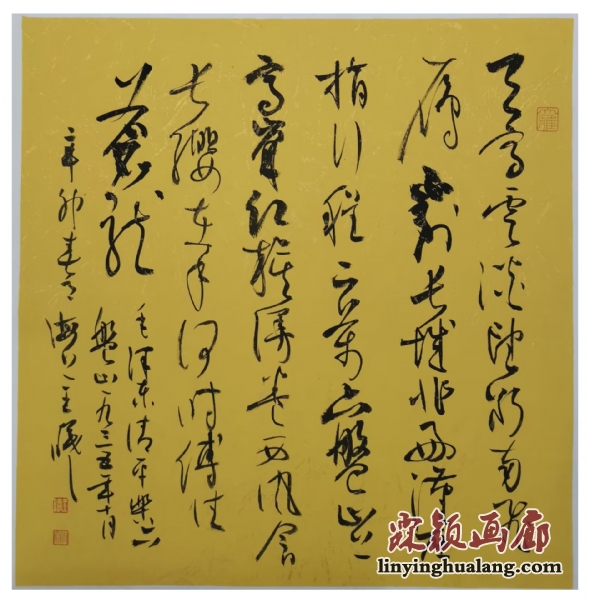 天高雲淡望斷南飛
雁不到長城非好漢屈
指行程二萬六盤山上
高峰紅旗漫卷西風今日
长纓在手何时縛住
蒼龍
毛泽东清平樂六
盤山一九三五年十月
辛卯春月海上王曦
深颖画廊
linyinghualang.com